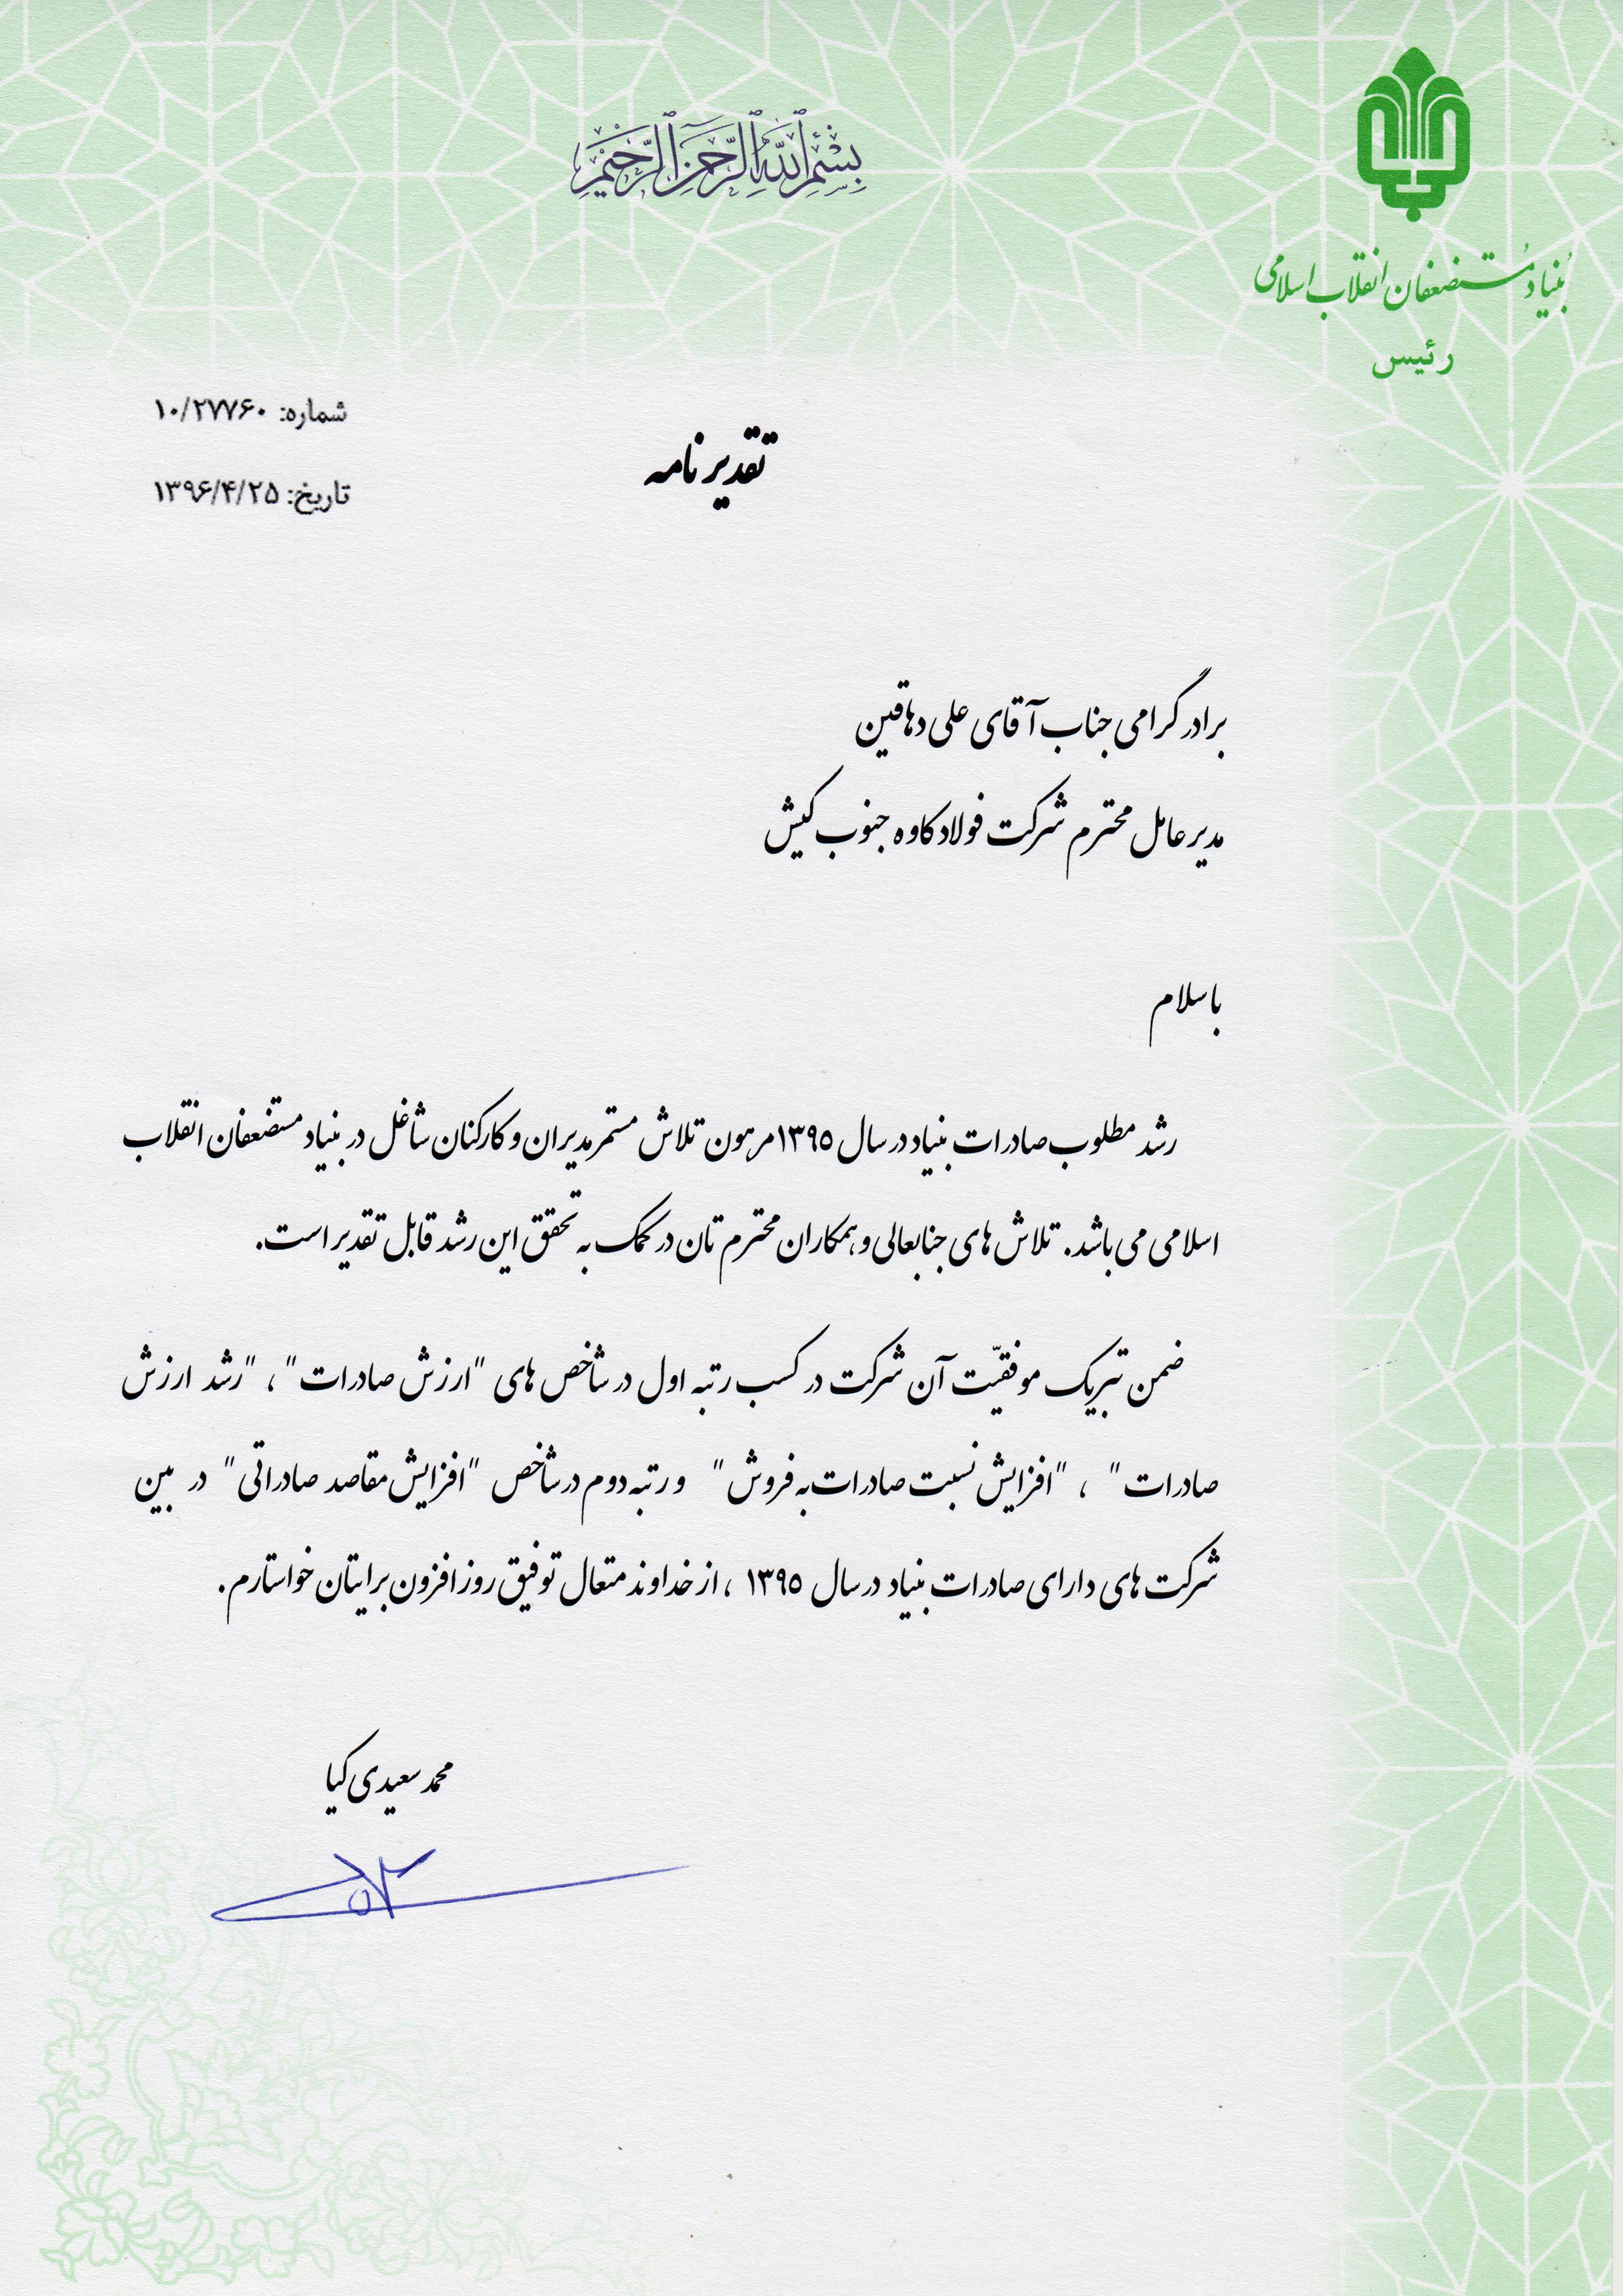 بِسْمِ ٱللَّهِ ٱلرَّحْمَٰنِ ٱلرَّحِيمِ
بُنیاد مُستضعفان انقلاب اسلامی
رئیس
شماره: ۱۰/۲۷۷۶۰
تاریخ: ۱۳۹۶/۴/۲۵
تقدیرنامه
برادر گرامی جناب آقای علی دهاقین
مدیرعامل محترم شرکت فولاد کاوه جنوب کیش
باسلام
رشد مطلوب صادرات بنیاد در سال ۱۳۹۵ مرهون تلاش مستمر مدیران و کارکنان شاغل در بنیاد مستضعفان انقلاب
اسلامی می باشد. تلاش های جنابعالی و همکاران محترم تان در کمک به تحقق این رشد قابل تقدیر است.
ضمن تبریک موفقیّت آن شرکت در کسب رتبه اول در شاخص های "ارزش صادرات"، "رشد ارزش
صادرات" ، "افزایش نسبت صادرات به فروش" و رتبه دوم در شاخص "افزایش مقاصد صادراتی" در بین
شرکت های دارای صادرات بنیاد در سال ۱۳۹۵ ، از خداوند متعال توفیق روز افزون برایتان خواستارم.
محمد سعیدی کیا